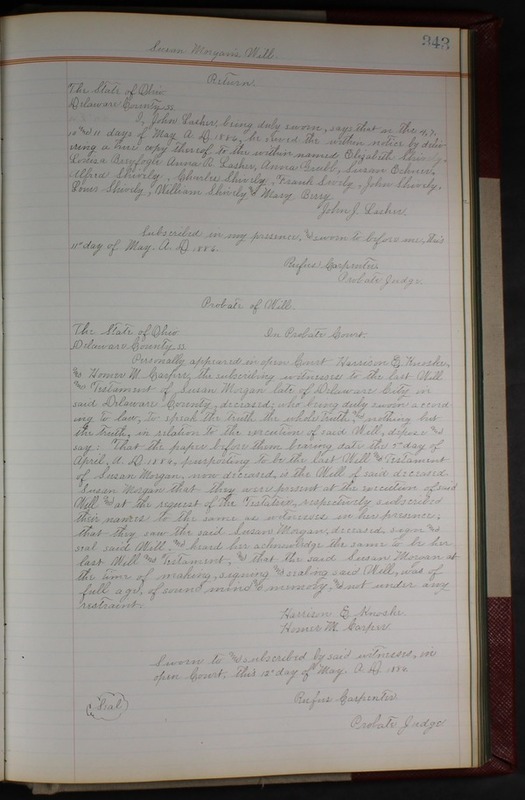 Susan Morgan's Will.
343
Return.
The State of Ohio
Delaware County ss.
I, John Lasher, being duly sworn, says that on the
10 and 11 days of May A. D. 1886, he served the within notice by deliv-
ering a true copy thereof to the within named Elizabeth Shively
Louisa Breyfogle Anna R. Lasher, Susan
Alfred Shively, Charlie Shively, Frank Sively, John Shively,
Louis Shively, William Shively & Mary Berry
John J. Lasher.
Subscribed in my presence, and sworn to before me, this
11" day of May. A. D. 1886.
Rufus Carpenter
Probate Judge.
Probate of Will.
The State of Ohio In Probate Court.
Delaware County ss
Personally appeared in open Court Harrison E. Knoske,
and Homer M. Carper, the subscribing witnesses to the last Will
and Testament of Susan Morgan late of Delaware City in
said Delaware County, deceased; who being duly sworn accord
ing to law, to speak the truth the whole truth, and nothing but
the truth, in relation to the execution of said Will, depose and
say: That the paper before them bearing date the day of
April, A. D. 1884, purporting to be the last Will and Testament
of Susan Morgan, now deceased, is the Will of said deceased
Susan Morgan that they were present at the execution of said
Will and at the request of the Testatrix, respectively subscribed
their names to the same as witnesses in her presence;
that they saw the said Susan Morgan, deceased, sign and
seal said Will, and heard her acknowledge the same to be her
last Will and Testament, and that the said Susan Morgan at
the time of making, signing and sealing said Will, was of
full age, of sound mind and memory, and not under any
restraint.
Harrison E. Knoske
Homer M. Carper.
Sworn to and subscribed by said witnesses, in
open Court, this 12" day of May. A. D. 1886
Rufus Carpenter
Seal
Probate Judge